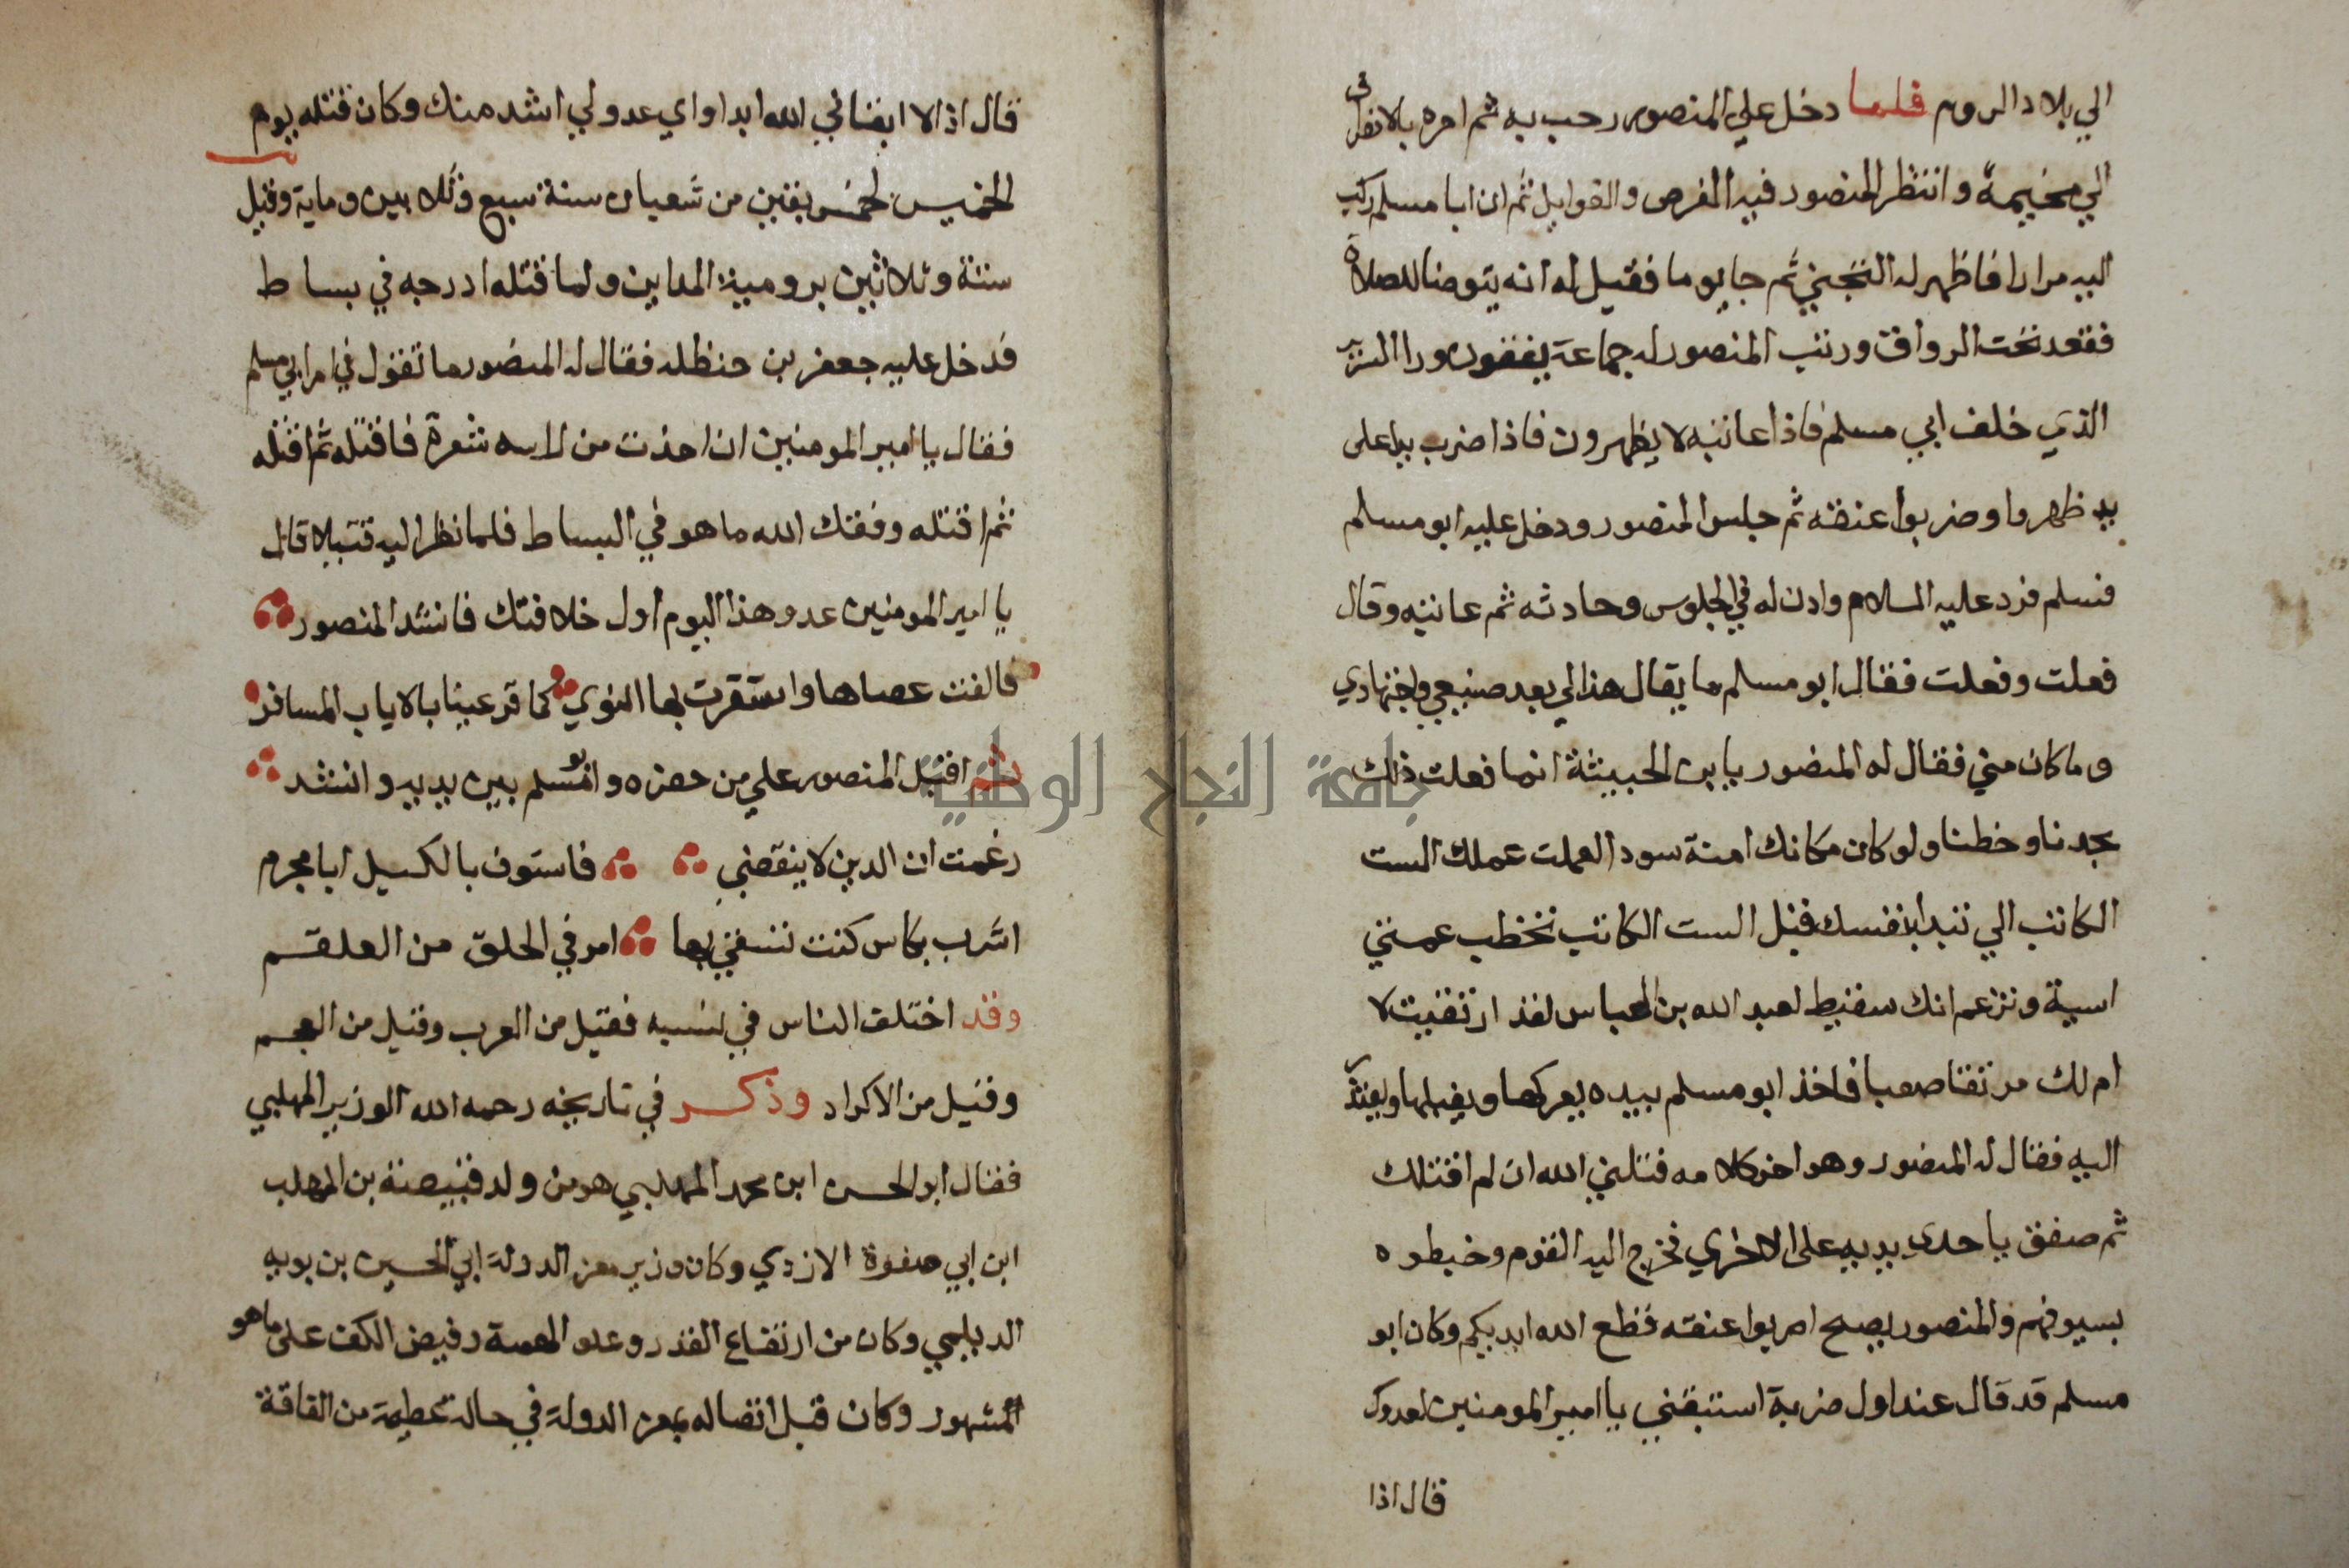 الي بلاد الروم فلما دخل علي المنصور رحب به ثم امره بالانصراف
الي مخيمة وانتظر المنصور فيه الفرص والقوايل ثم ان ابا مسلم ركب
اليه مرارا فاظهر له التجني ثم جا يوما فقيل له انه يتوضا للصلاة
فقعد تحت الرواق ورتب المنصور له جماعة يقفون ورا السرير
الذي خلف ابي مسلم فاذا عاتبه لا يظهرون فاذا ضرب يدا على
يد ظهروا وضربوا عنقه ثم جلس المنصور ودخل عليه ابو مسلم
فسلم فرد عليه السلام واذن له في الجلوس وحادثه ثم عاتبه وقال
فعلت وفعلت فقال ابو مسلم ما يقال هذا لي بعد صنيعي واجتهادي
وما كان مني فقال له المنصور يا بن الخبيثة انما فعلت ذلك
بجدنا وخطنا ولو كان مكانك امة سودا لعملت عملك الست
الكاتب الي تبدا بنفسك قبل الست الكاتب تخطب عمتي
اسية وتزعم انك سفيط لعبد الله بن العباس لقد ارتقيت لا
ام لك مرتقا صعبا فاخذ ابو مسلم بيده يعركها ويقبلها ويعتذر
اليه فقال له المنصور وهو اخر كلامه قتلني الله ان لم اقتلك
ثم صفق باحدى يديه على الاخري فخرج اليه القوم وخبطوه
بسيوفهم والمنصور يصيح اضربوا عنقه قطع الله ايديكم وكان ابو
مسلم قد قال عند اول ضربة استبقني يا امير المومنين لعدوك
قال اذا
قال اذا لا ابقاني الله ابدا واي عدو لي اشد منك وكان قتله يوم
الخميس لخمس بقين من شعبان سنة سبع وثلاثين وماية وقيل
ستة وثلاثين برومية المداين ولما قتله ادرجه في بساط
فدخل عليه جعفر بن حنظله فقال له المنصور ما تقول في امر ابي مسلم
فقال يا امير المومنين ان اخذت من راسه شعرة فاقتله ثم اقتله
ثم اقتله وفقك الله ما هو في البساط فلما نظر اليه قتيلا قال
يا امير المومنين عد وهذا اليوم اول خلافتك فانشد المنصور
فالقت عصاها واستقرت بها النوي كما قر عينا بالاياب المسافر
ثم اقبل المنصور علي من حضره وابو مسلم بين يديه وانشد
زعمت ان الدين لا ينقضي فاستوف بالكيل ابا مجرم
اشرب بكاس كنت تسقي بها امر في الحلق من العلقم
وقد اختلف الناس في نسبه فقيل من العرب وقيل من العجم
وقيل من الاكراد وذكر في تاريخه رحمه الله الوزير المهلبي
فقال ابو الحسن ابن محمد المهلبي هو من ولد قبيصة بن المهلب
ابن ابي صفرة الازدي وكان وزير معز الدولة ابي الحسين بن بويه
الديلمي وكان من ارتفاع القدر وعلو الهمة وفيض الكف على ما هو
المشهور وكان قبل اتصاله بمعز الدولة في حالة عظيمة من الفاقة
جامعة النجاح الوطنية